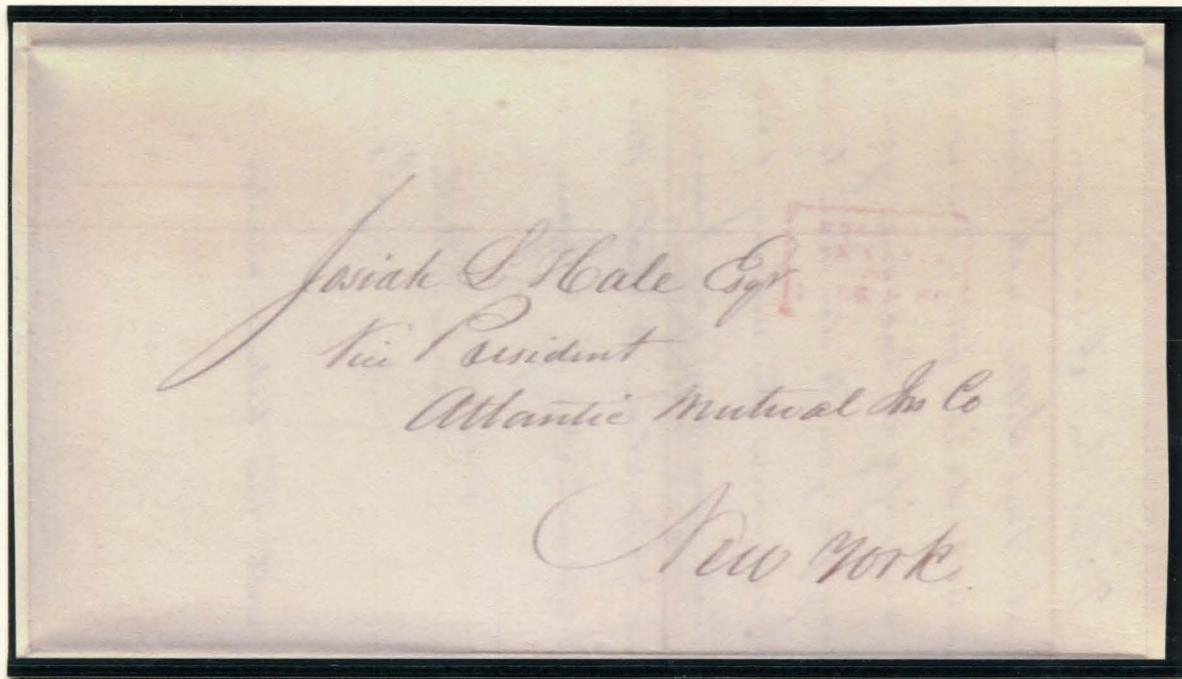 Josiah L Hale Esqr
Vice President
Atlantic Mutual Ins Co
New York